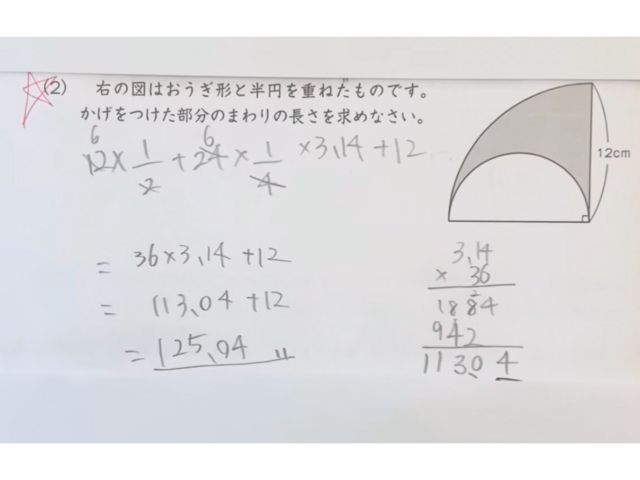 (2) 右の図はおうぎ形と半円を重ねたものです。
かげをつけた部分のまわりの長さを求めなさい。
12cm
6 6
12×1/2+24×1/4×3.14+12
=36×3.14+12
=113.04+12
=125.04
3.14
×36
1884
942
113.04